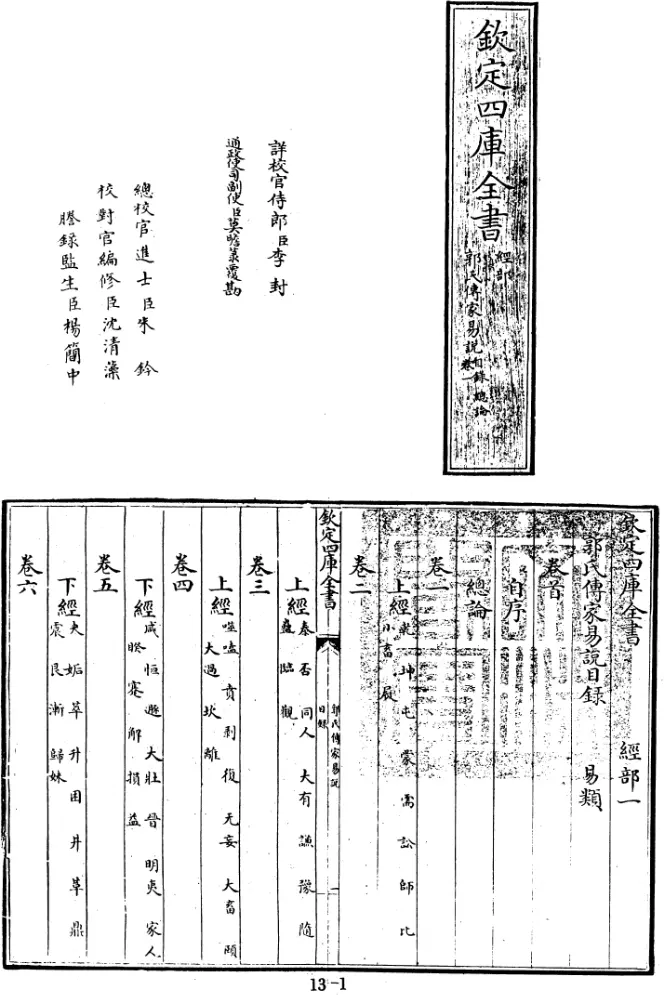 欽定四庫全書
經部
郭氏傳家易說目錄 總論
卷一
詳校官侍郎臣李封
通政使司副使臣莫瞻菉覆勘
總校官進士臣朱鈐
校對官編修臣沈清藻
謄錄監生臣楊簡中
欽定四庫全書 經部一
郭氏傳家易說目錄 易類
卷首
自序
總論
卷一
上經乾 坤 屯 蒙 需 訟 師 比
小畜 履
卷二
欽定四庫全書
郭氏傳家易說
目錄
一
上經泰 否 同人 大有 謙 豫 隨
蠱 臨 觀
卷三
上經噬嗑 賁 剝 復 无妄 大畜 頤
大過 坎 離
卷四
下經咸 恒 遯 大壯 晉 明夷 家人
睽 蹇 解 損 益
卷五
下經夬 姤 萃 升 困 井 革 鼎
震 艮 漸 歸妹
卷六
13-1